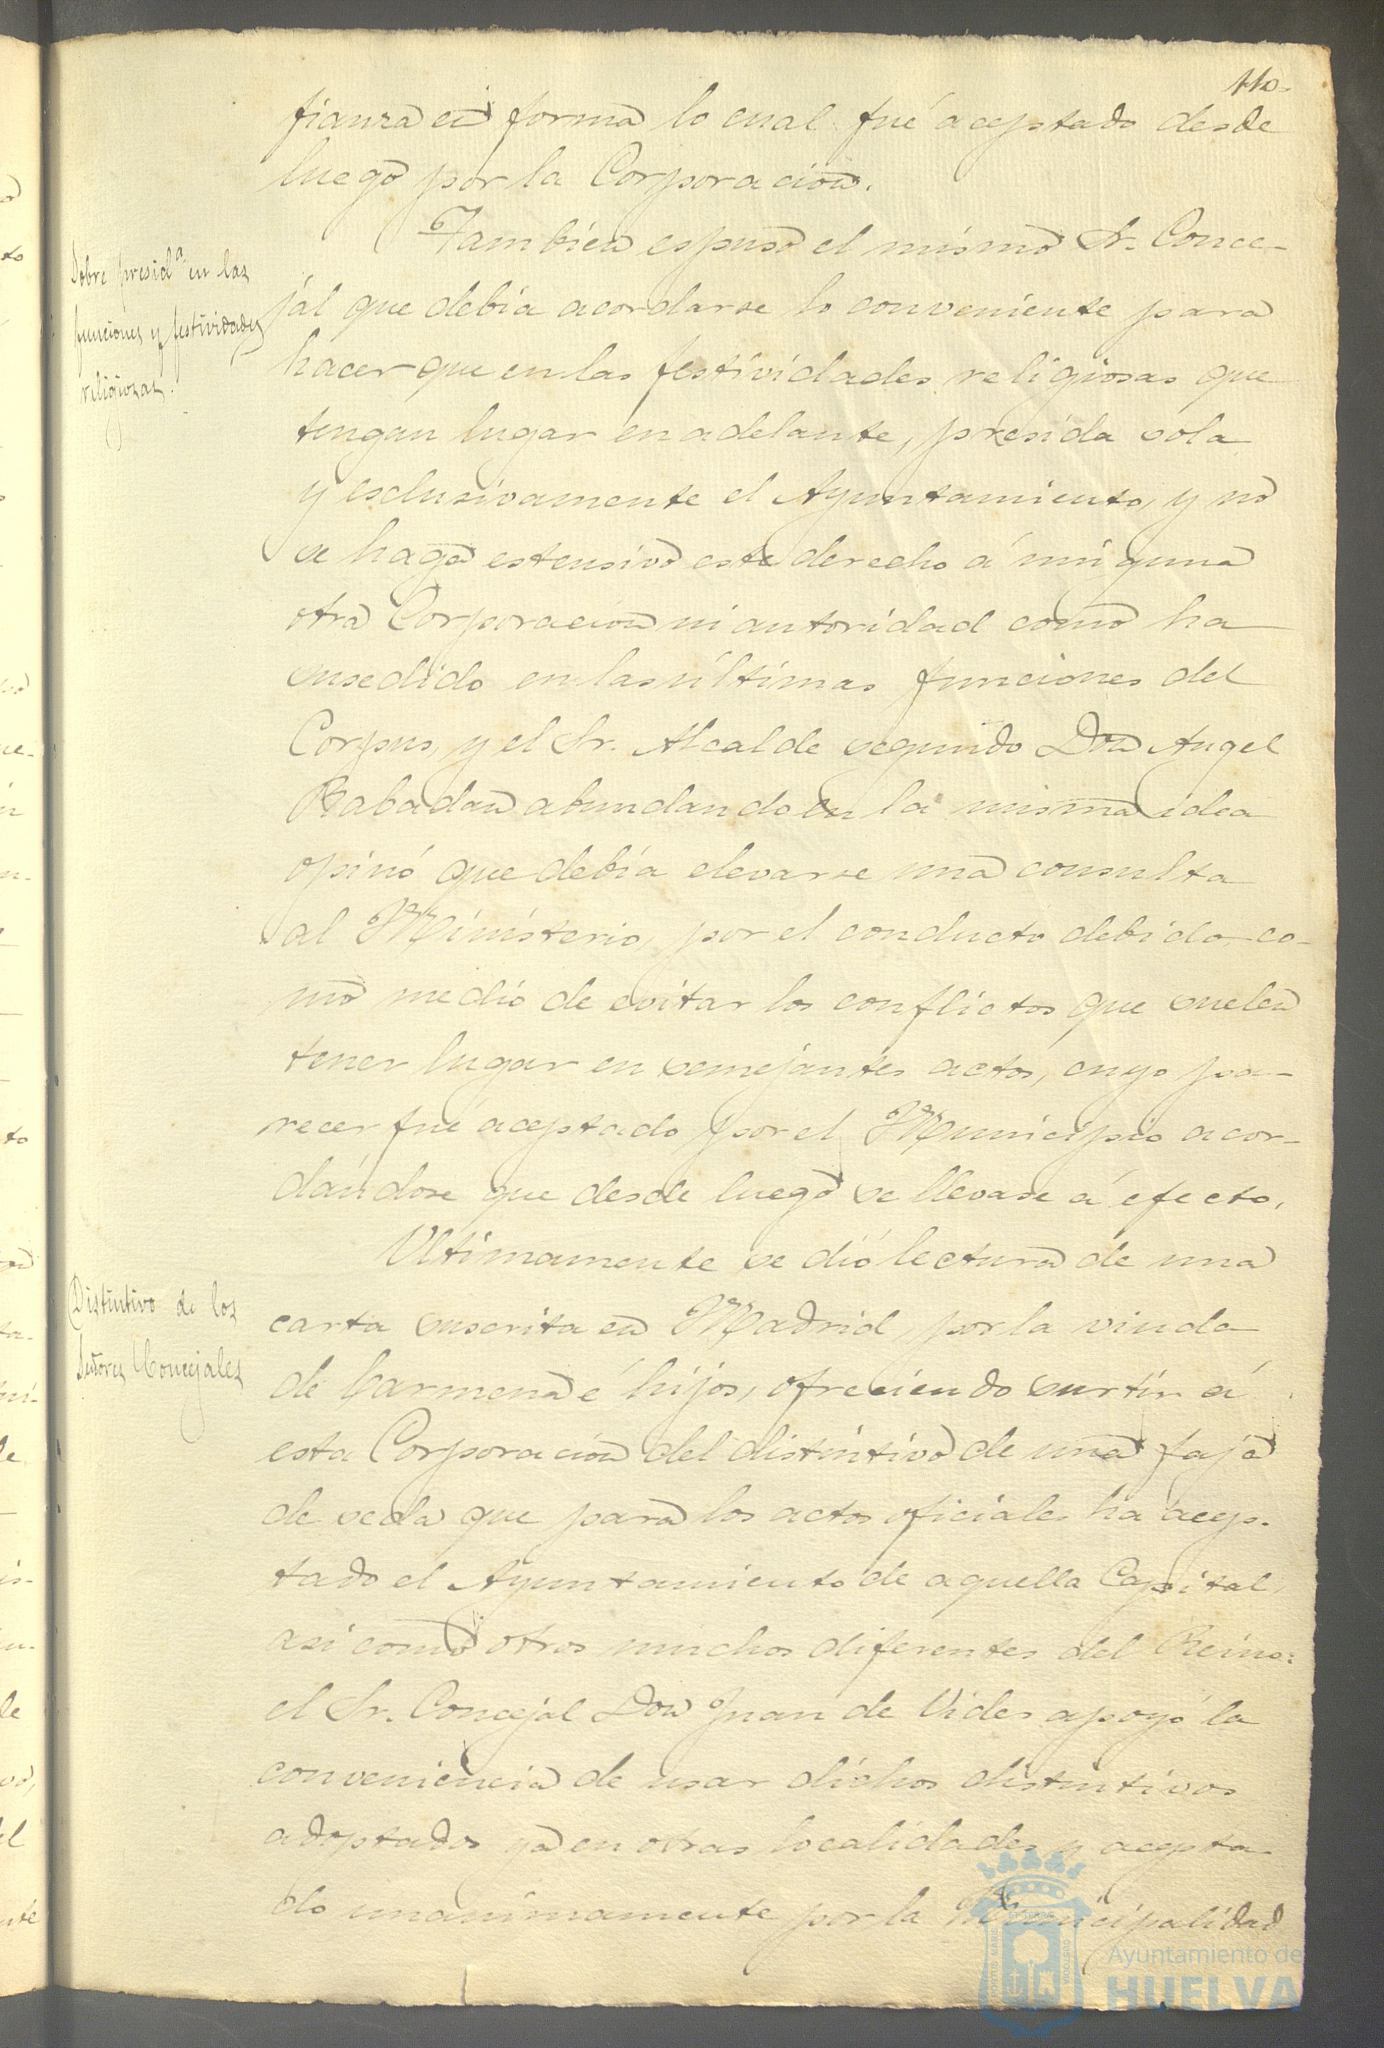 110.
fianza en forma lo cual fué aceptado desde
luego por la Corporacion.
Sobre presid.ª en las
funciones y festividades
religiosas.
Tambien espuso el mismo Sr. Conce-
jal que debía acordarse lo conveniente para
hacer que en las festividades religiosas que
tengan lugar en adelante, presida sola
y esclusivamente el Ayuntamiento, y no
se haga estensivo este derecho á ninguna
otra Corporacion ni autoridad como ha
susedido en las últimas funciones del
Corpus, y el Sr. Alcalde segundo Don Angel
Rabadan abundando en la misma idea
opinó que debía elevarse una consulta
al Ministerio, por el conducto debido, co-
mo medio de evitar los conflictos que suelen
tener lugar en semejantes actos, cuyo pa-
recer fué aceptado por el Municipio acor-
dándose que desde luego se llevase á efecto.
Distintivo de los
Señores Concejales
Ultimamente se dió lectura de una
carta suscrita en Madrid, por la viuda
de é hijos, ofreciendo surtir á
esta Corporacion del distintivo de una faja
de seda que para los actos oficiales ha acep-
tado el Ayuntamiento de aquella Capital,
asi como otros muchos diferentes del Reino:
el Sr. Concejal Don Juan de Vides apoyó la
conveniencia de usar dichos distintivos
adoptados ya en otras localidades y acepta-
do unanimamente por la Municipalidad
Ayuntamiento de
HUELVA